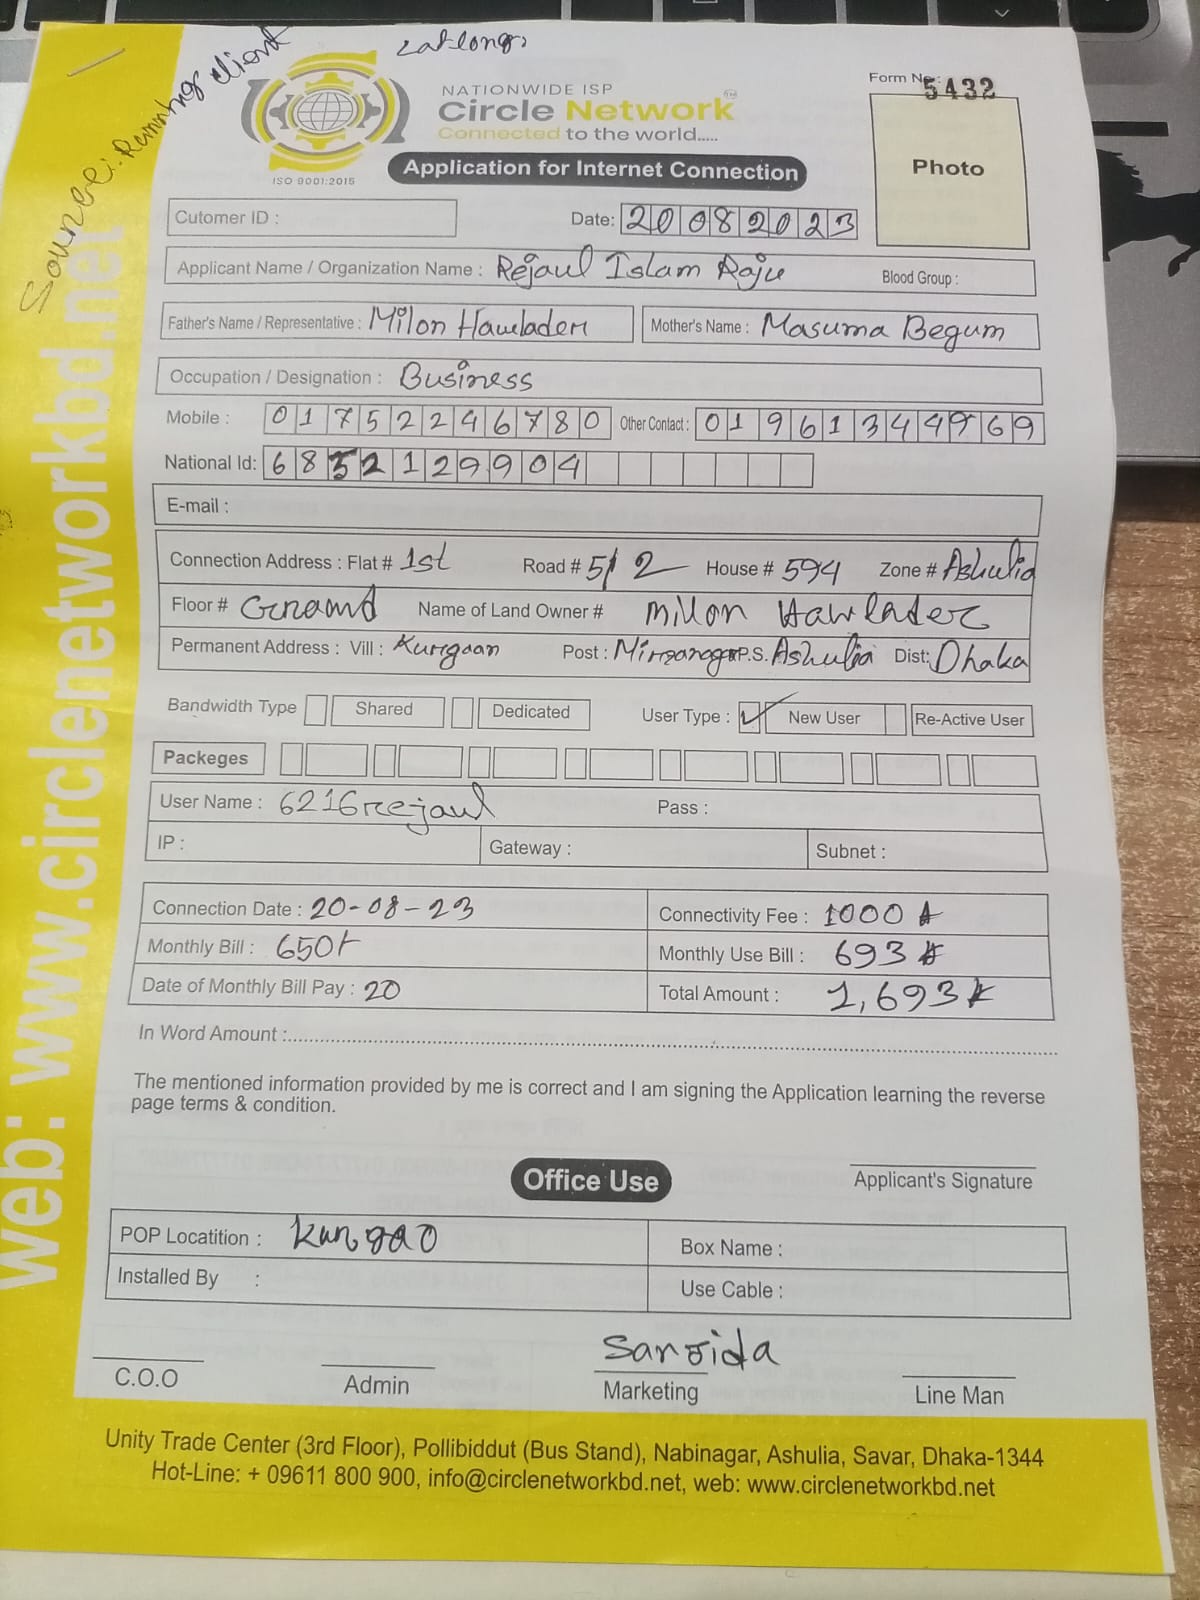 Source: Running client
Lat long:
NATIONWIDE ISP
Circle Network TM
Connected to the world.....
ISO 9001:2015
Application for Internet Connection
Form No: 5432
Photo
Cutomer ID :
Date: 20082023
Applicant Name / Organization Name : Rejaul Islam Raju Blood Group :
Father's Name / Representative : Milon Hawlader Mother's Name : Masuma Begum
Occupation / Designation : Business
Mobile : 01752246780 Other Contact : 01961344969
National Id: 6852129904
E-mail :
Connection Address : Flat # 1st Road # 5/2 House # 594 Zone # Ashulia
Floor # Grnamd Name of Land Owner # Millon Hawlader
Permanent Address : Vill : Kurgaon Post : Mirzanagar P.S. Ashulia Dist: Dhaka
Bandwidth Type Shared Dedicated User Type : ✓ New User Re-Active User
Packeges
User Name : 6216rejaul Pass :
IP : Gateway : Subnet :
Connection Date : 20-08-23 Connectivity Fee : 1000
Monthly Bill : 650 Monthly Use Bill : 693
Date of Monthly Bill Pay : 20 Total Amount : 1,693
In Word Amount :
The mentioned information provided by me is correct and I am signing the Application learning the reverse
page terms & condition.
Applicant's Signature
Office Use
POP Locatition : Kungao Box Name :
Installed By : Use Cable :
Sanjida
C.O.O Admin Marketing Line Man
Unity Trade Center (3rd Floor), Pollibiddut (Bus Stand), Nabinagar, Ashulia, Savar, Dhaka-1344
Hot-Line: + 09611 800 900, info@circlenetworkbd.net, web: www.circlenetworkbd.net
web: www.circlenetworkbd.net